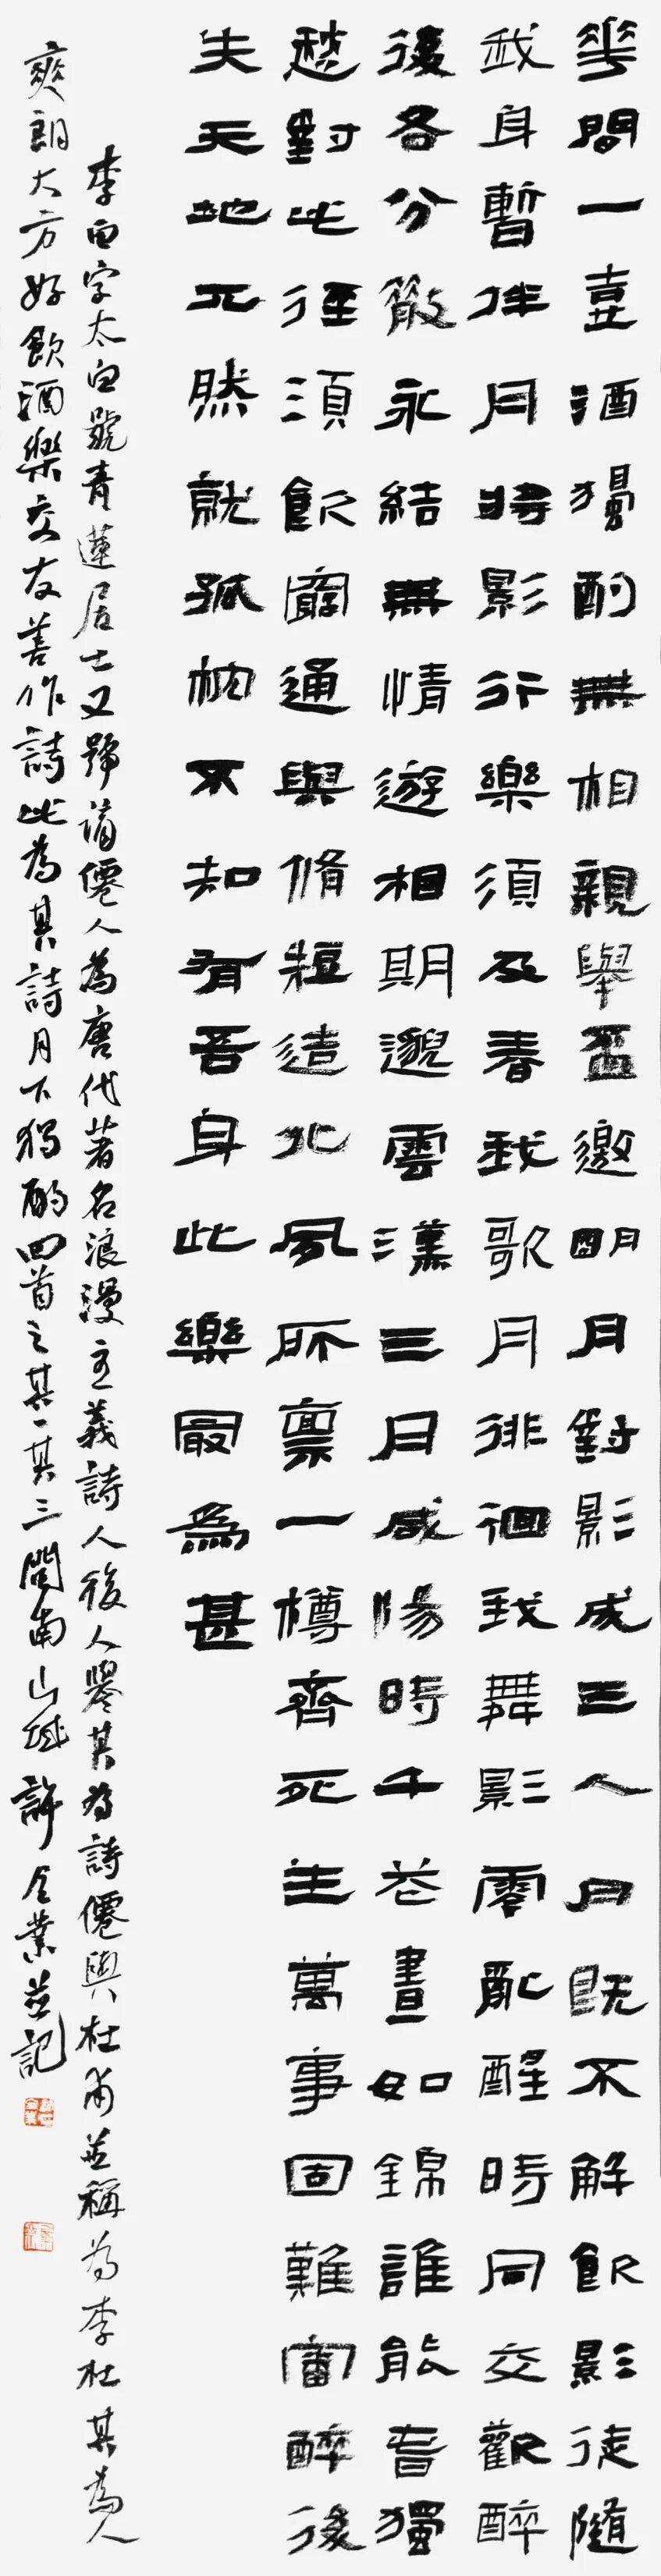 華間一壺酒獨酌無相親舉盃邀明月對影成三人月既不解飲影徒隨
我身暫伴月將影行樂須及春我歌月徘徊我舞影零亂醒時同交歡醉
後各分散永結無情遊相期邈雲漢三月咸陽時千花晝如錦誰能春獨
愁對此徑須飲窮通與脩短造化夙所稟一樽齊死生萬事固難審醉後
失天地兀然就孤枕不知有吾身此樂最為甚
李白字太白號青蓮居士又號謫僊人為唐代著名浪漫主義詩人後人譽其為詩僊與杜甫並稱為李杜其為人
爽朗大方好飲酒樂交友善作詩此為其詩月下獨酌四首之其一其三閩南山城許業並記